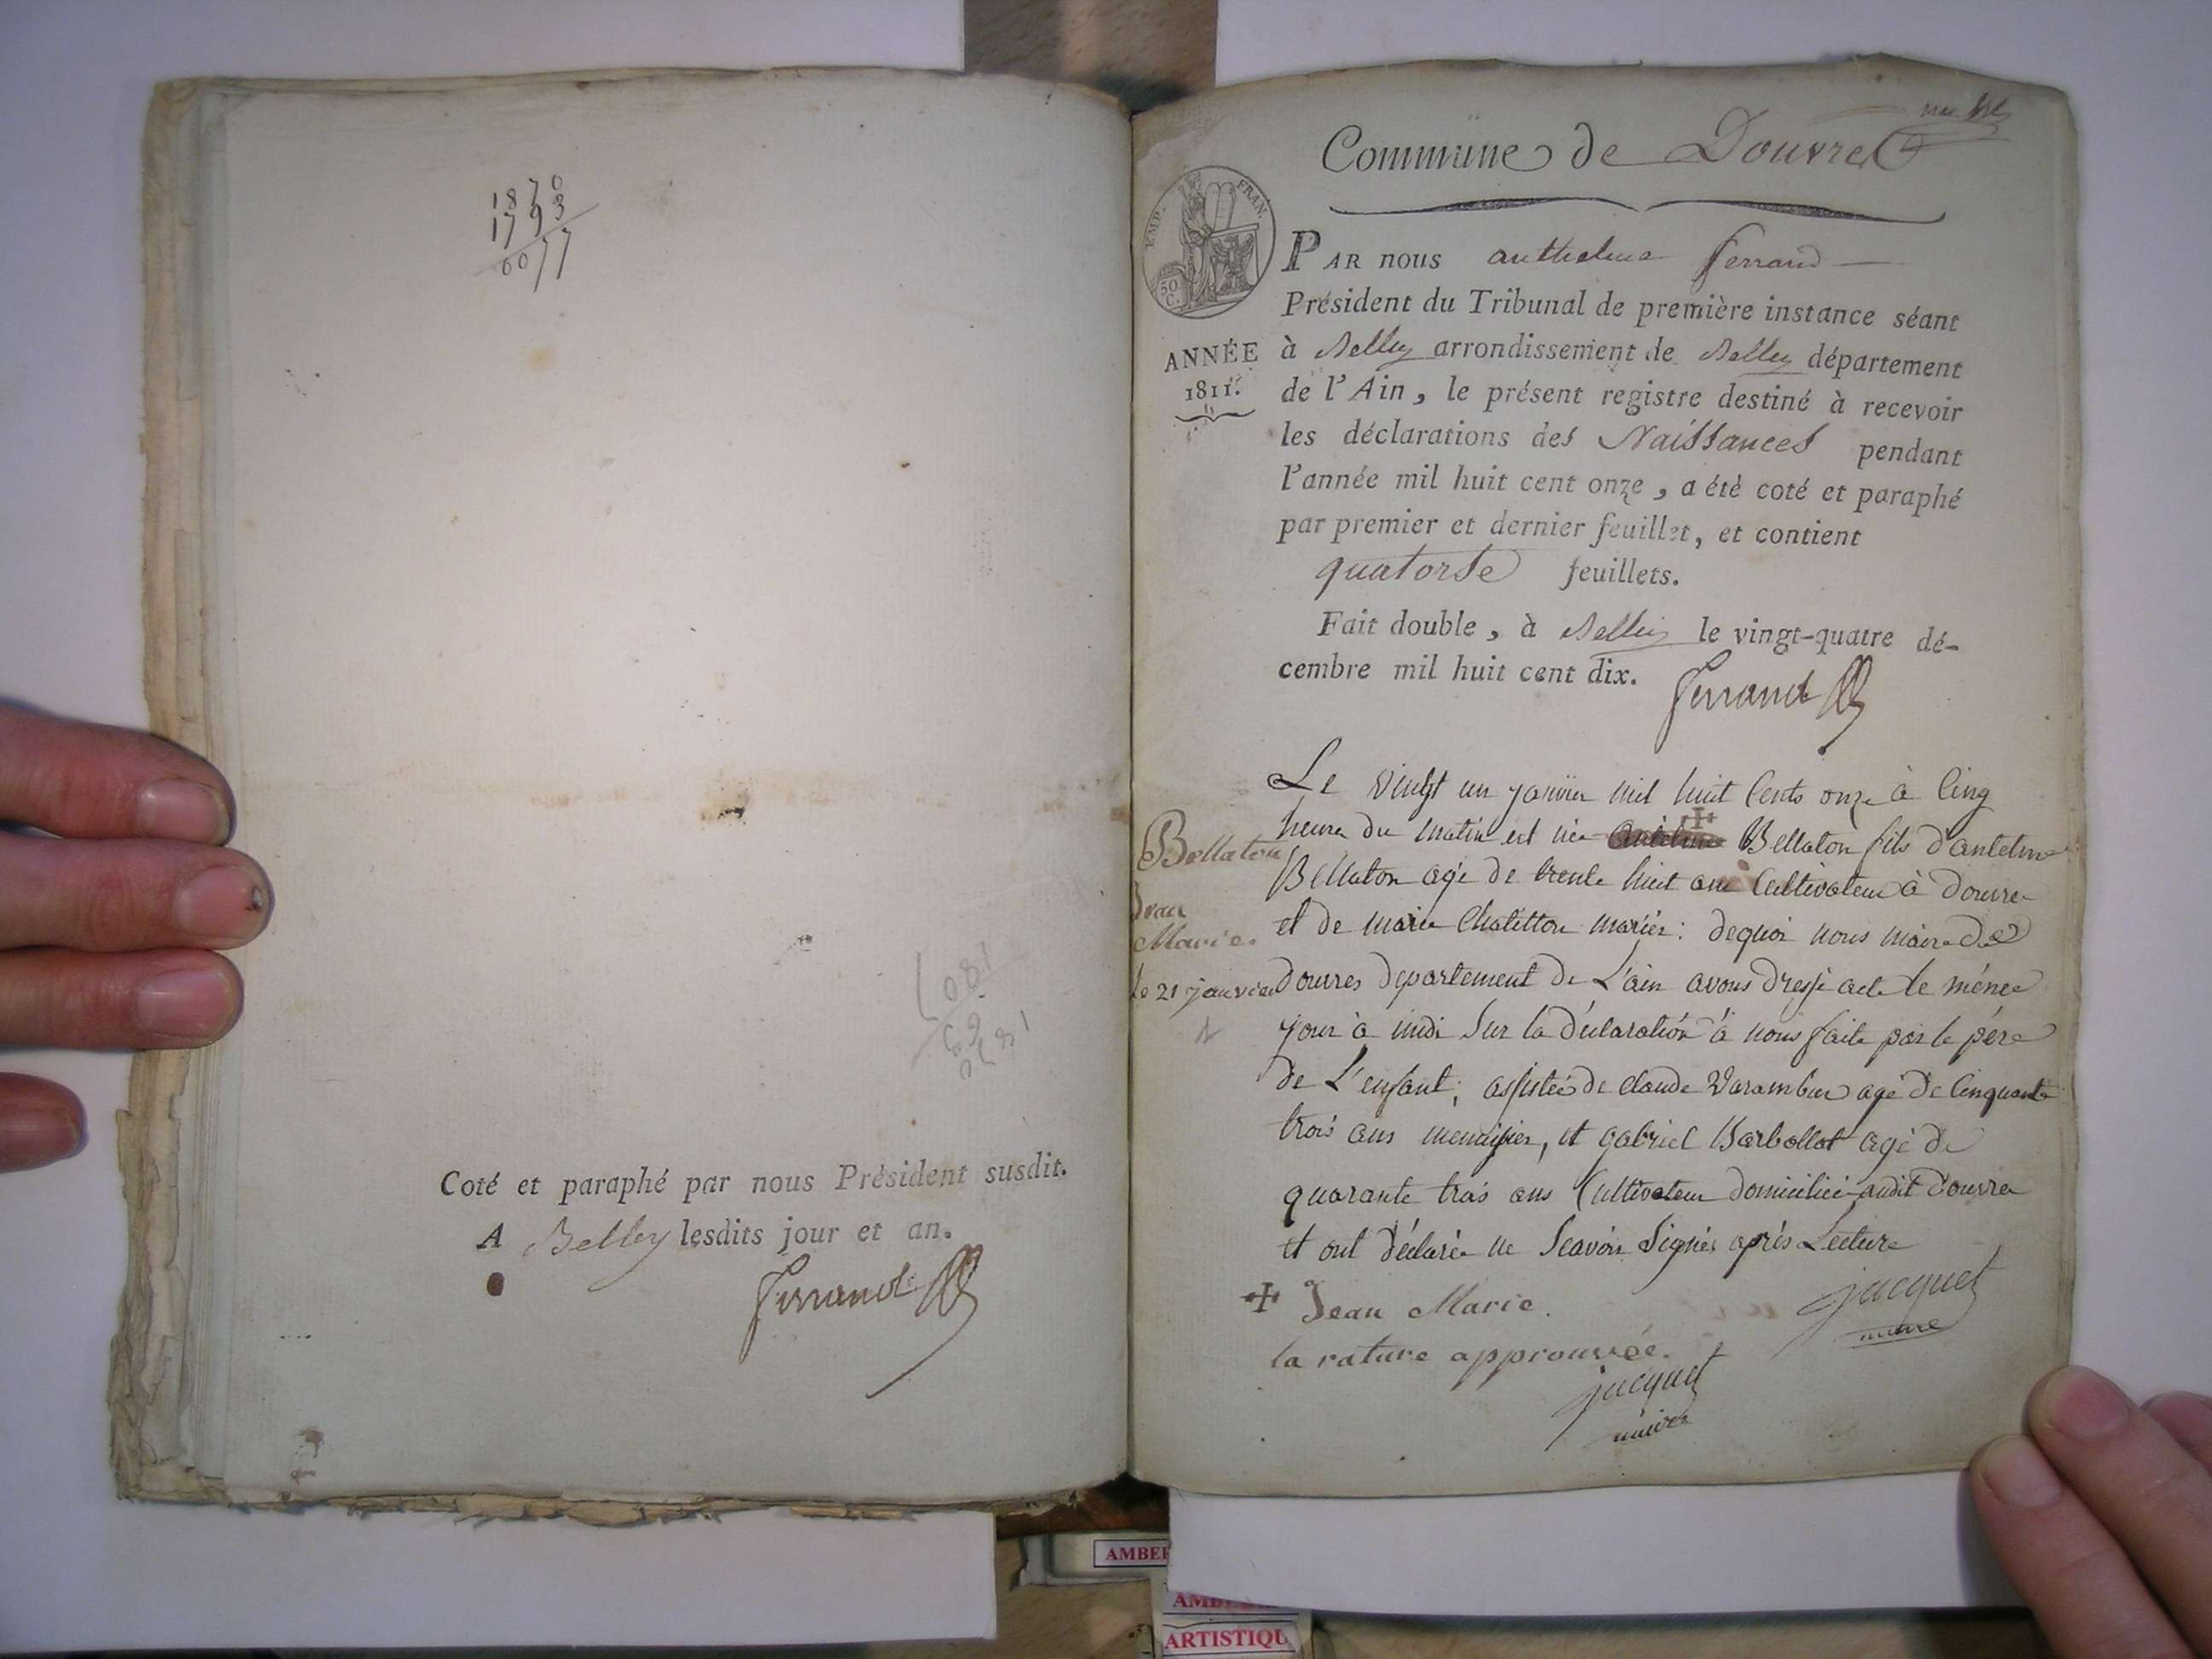 1870
1793
0077
Coté et paraphé par nous Président susdit.
A Belley lesdits jour et an.
Ferrand
Commune de Douvres
EMP. FRAN.
50 C.
ANNÉE
1811.
PAR nous anthelme ferrand
Président du Tribunal de première instance séant
à Belley arrondissement de Belley département
de l'Ain, le présent registre destiné à recevoir
les déclarations des Naissances pendant
l'année mil huit cent onze, a été coté et paraphé
par premier et dernier feuillet, et contient
quatorse feuillets.
Fait double, à Belley le vingt-quatre dé-
cembre mil huit cent dix.
Ferrand
Bellaton
Jean
Marie.
le 21 janvier
Le vingt un janvier mil huit Cents onze à Cinq
heure du matin est née Bellaton fils d'antelme
Bellaton agé de trente huit ans Cultivateur à Douvre
et de marie Chatillon mariés: dequoi nous maire de
Douvres departement de L'ain avons dressé acte le même
jour à midi Sur la déclaration à nous faite par le père
de L'enfant; assistée de claude Varambon agé de Cinquante
trois ans menuisier, et gabriel Barbollat agé de
quarante trois ans Cultivateur domicilié audit Douvre
et ont déclarée ne Scavoir Signés après Lecture
jacquet
maire
Jean Marie.
la rature approuvée.
jacquet
maire
AMBER
ARTISTIQU